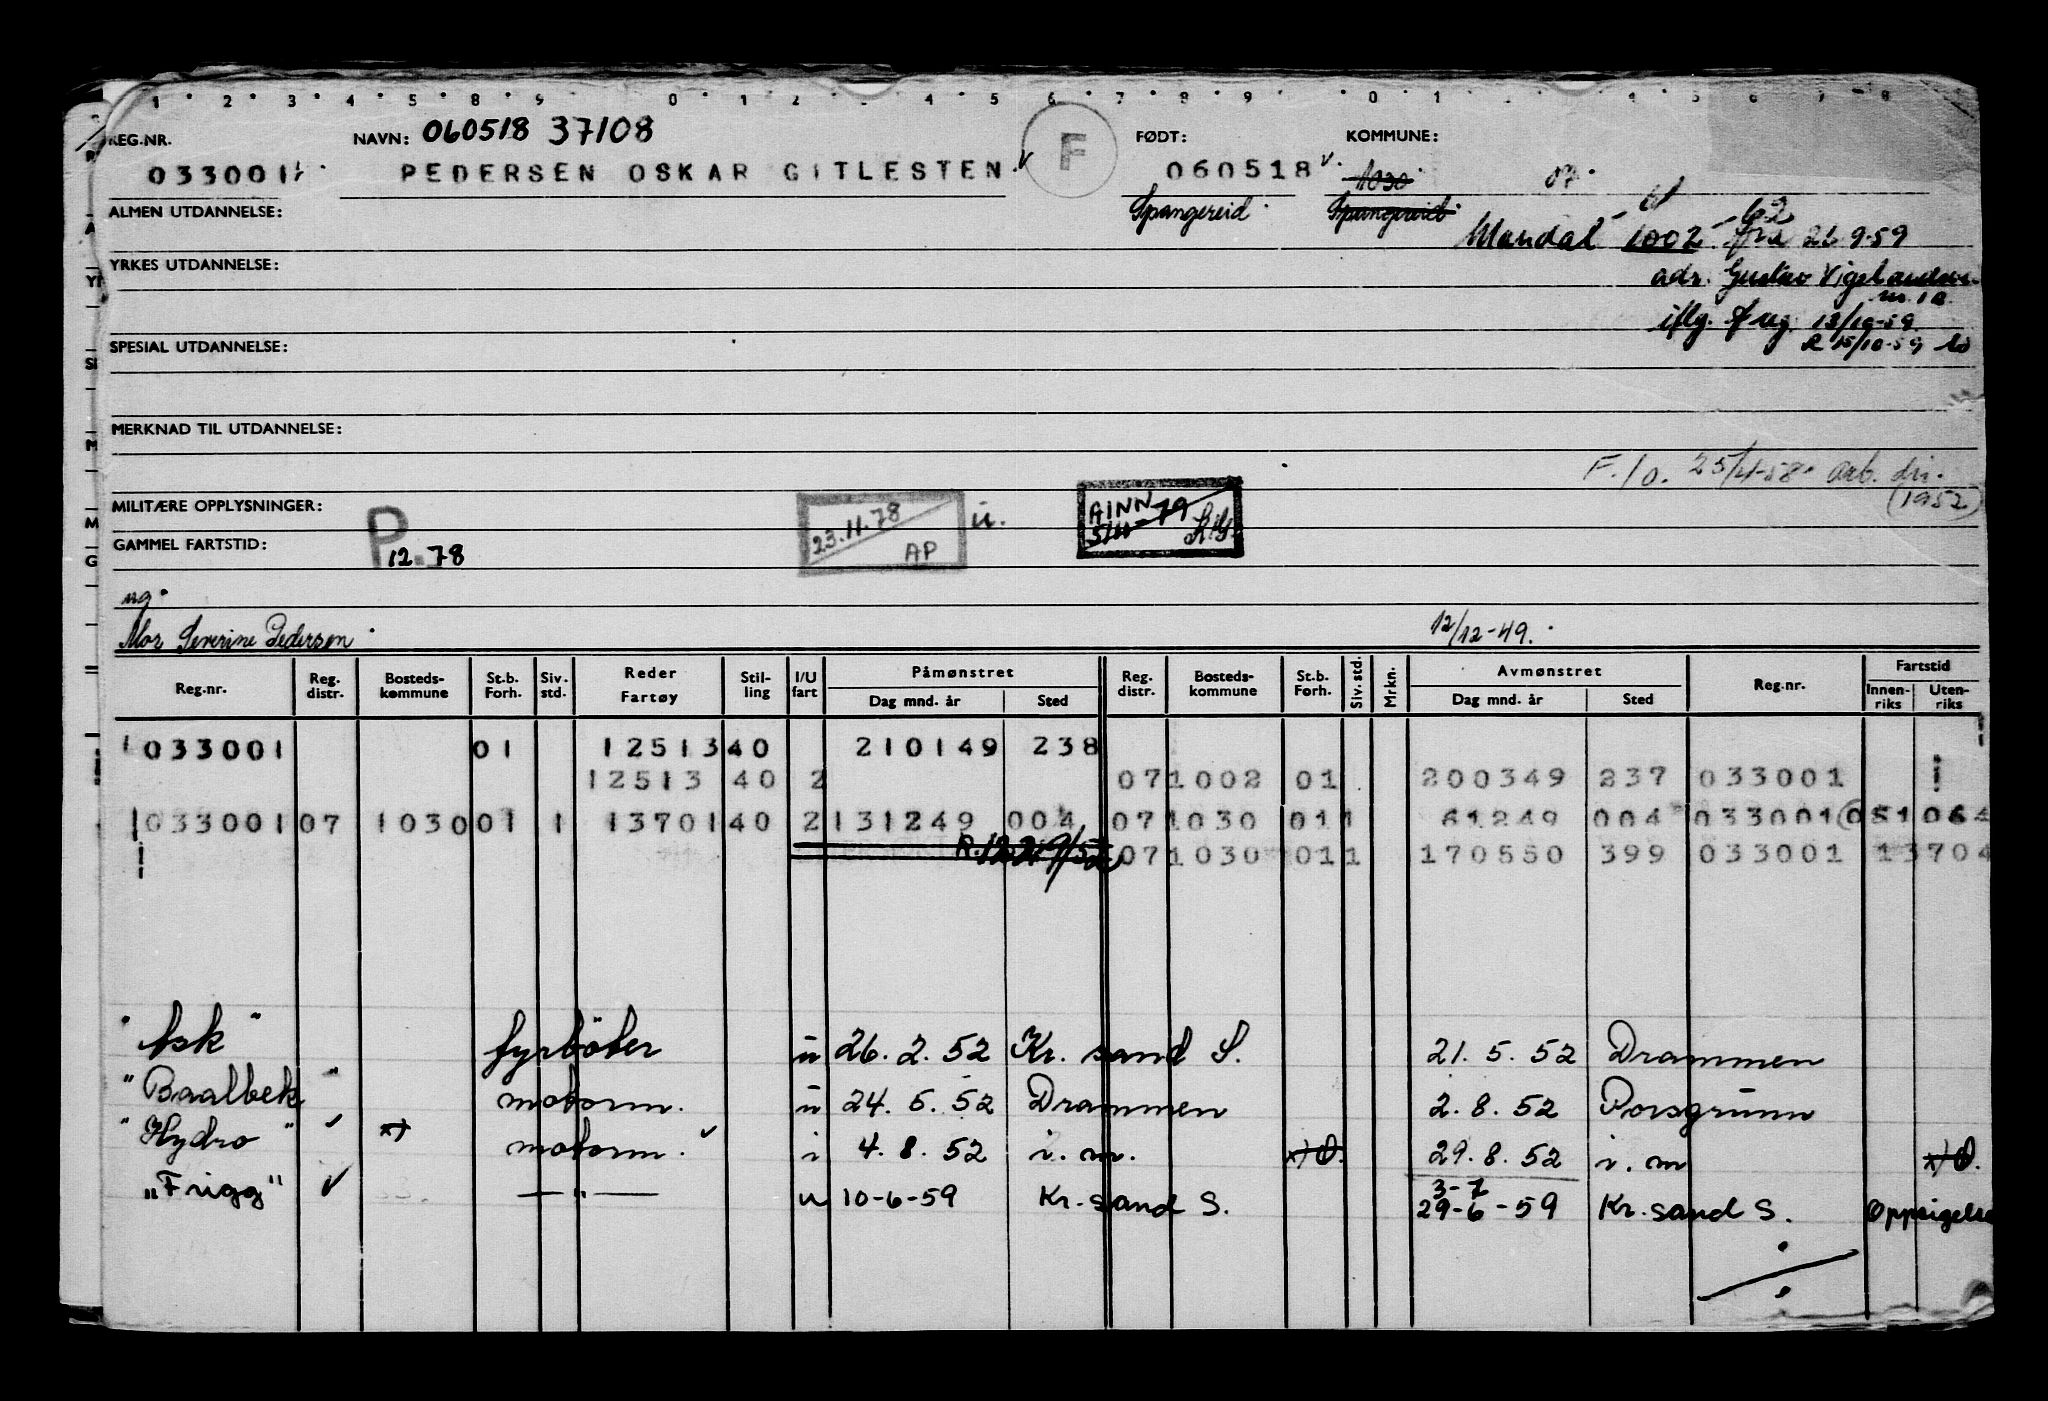 1 2 3 4 5 8 9 0 1 2 3 4 5 6 7 8 9 0 1
REG.NR. NAVN: 060518 37108 F FØDT: KOMMUNE:
033001 PEDERSEN OSKAR GITLESTEN 060518 1030 07
ALMEN UTDANNELSE: Spangereid Spangereid
Mandal 1002 fra 21 9-59
YRKES UTDANNELSE: adr. Gustav Vigelandsv.
nr. 1 a.
iflg. 13/10-59
SPESIAL UTDANNELSE: R 15/10-59
MERKNAD TIL UTDANNELSE:
F. 10. 25/4-58. arb. dir.
(1952)
MILITÆRE OPPLYSNINGER: P 23.11.78 AP u. AINN 5/11-79
GAMMEL FARTSTID: 12.78
ug.
Mor Severine Pedersen. 12/12-49.
Reg.nr. Reg. distr. Bosteds-kommune St.b. Forh. Siv. std. Reder Fartøy Stil-ling I/U fart Påmønstret Dag mnd. år Sted Reg. distr. Bosteds-kommune St.b. Forh. Siv. std. Mrkn. Avmønstret Dag mnd. år Sted Reg.nr. Fartstid Innen-riks Uten-riks
033001 01 12513 40 210149 238
12513 40 2 07 1002 01 200349 237 033001
033001 07 1030 01 1 13701 40 2 131249 004 07 1030 01 1 61249 004 033001 051064
07 1030 01 1 170550 399 033001 13704
"Ask" fyrböter u 26. 2. 52 Kr. sand S. 21. 5. 52 Drammen
"Baalbek" motorm. u 24. 5. 52 Drammen 2. 8. 52 Porsgrunn
"Hydro" x) motorm. i 4. 8. 52 i. m. x) O. 29. 8. 52 i. m x) O.
3-7
"Frigg" — " — u 10-6-59 Kr. sand S. 29-6-59 Kr. sand S. Oppsigelse